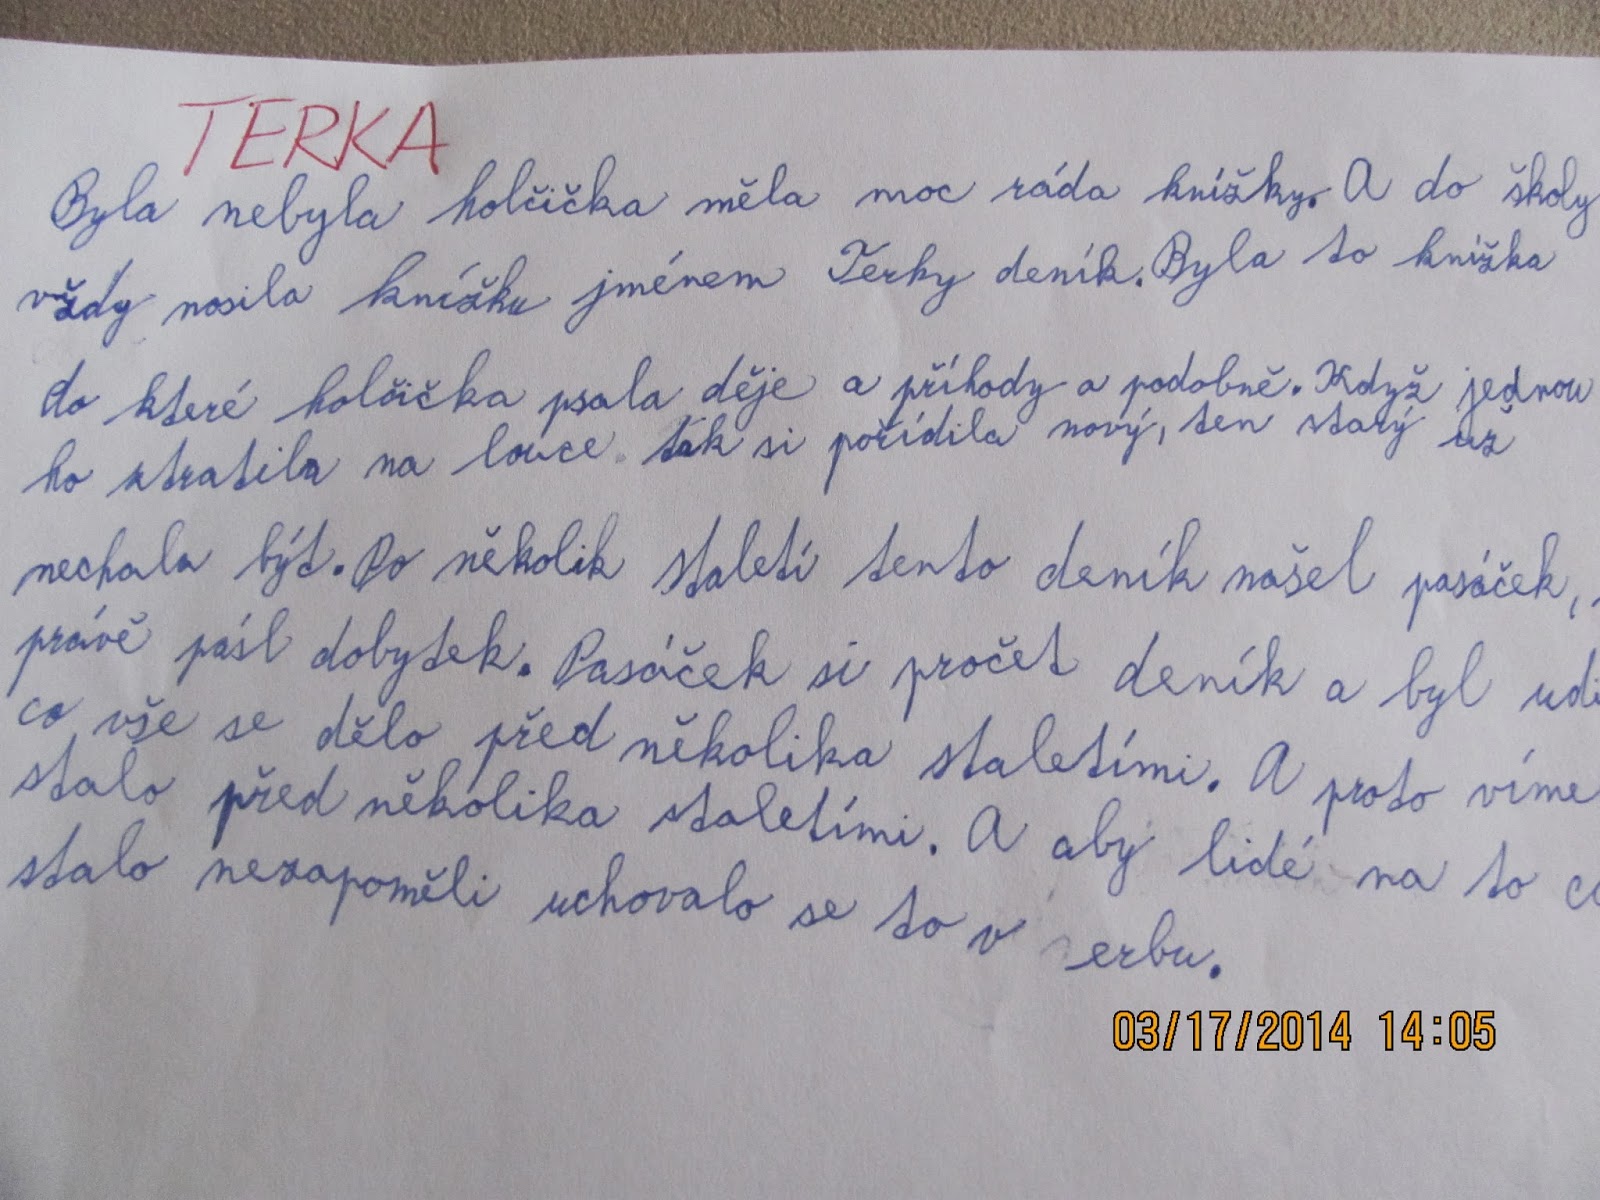 TERKA
Byla nebyla holčička měla moc ráda knížky. A do školy
vždy nosila knížku jménem Terky deník. Byla to knížka
do které holčička psala děje a příhody a podobně. Když jednou
ho ztratila na louce. tak si pořídila nový, ten starý už
nechala být. Po několik staletí tento deník našel pasáček,
právě pásl dobytek. Pasáček si pročet deník a byl udi
co vše se dělo před několika staletími. A proto víme
stalo před několika staletími. A aby lidé na to co
stalo nezapoměli uchovalo se to v erbu.
03/17/2014 14:05